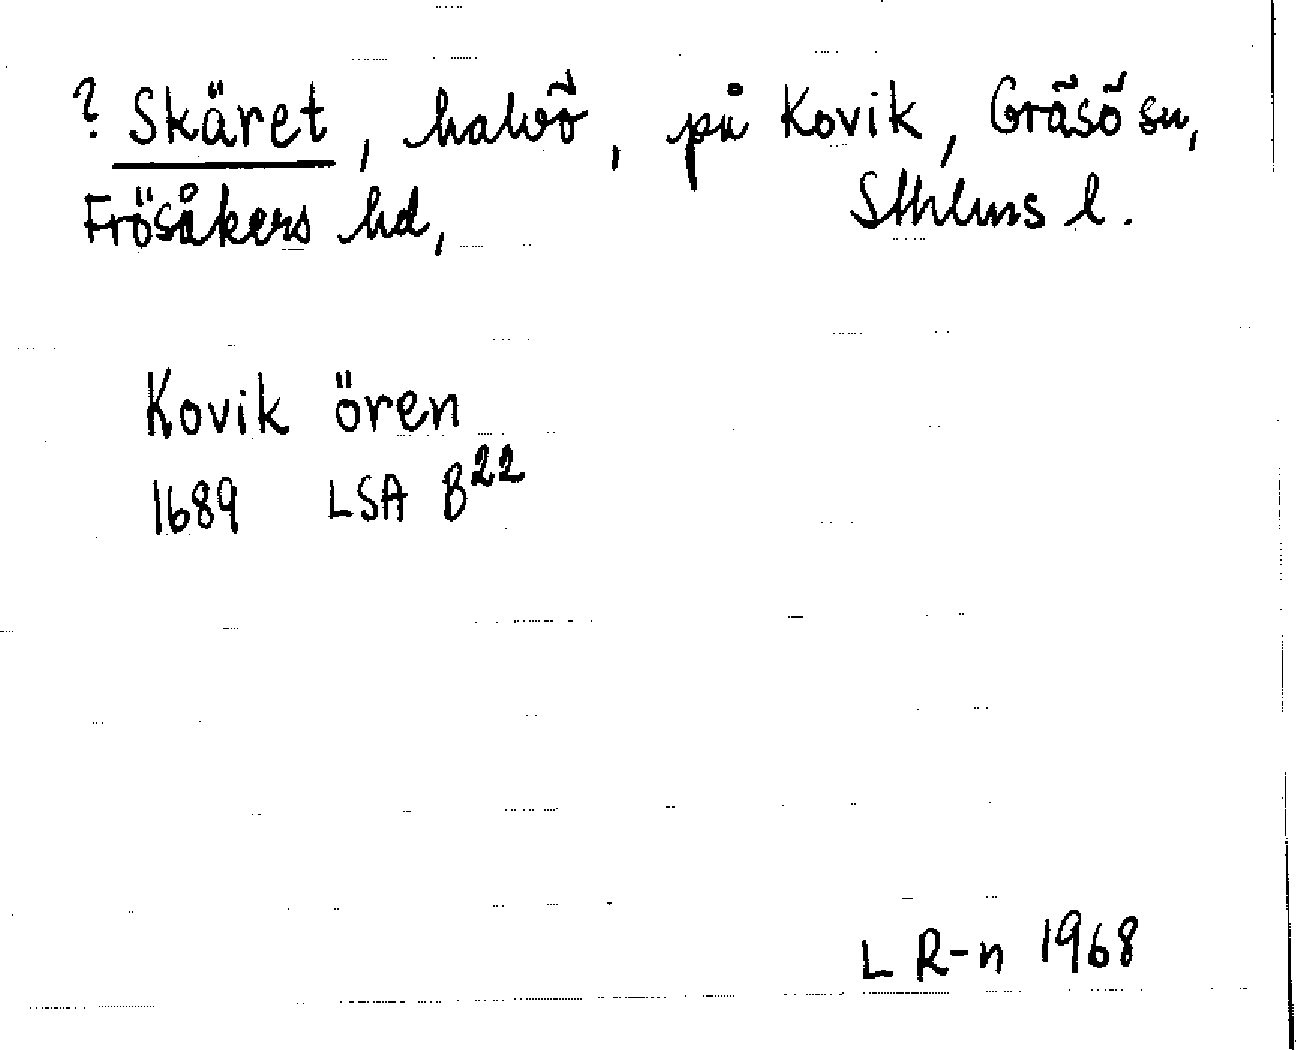 ? Skäret, halvö, på Kovik, Gräsö sn,
Frösåkers hd, Sthlms l.
Kovik ören
1689 LSA B²²
L R-n 1968